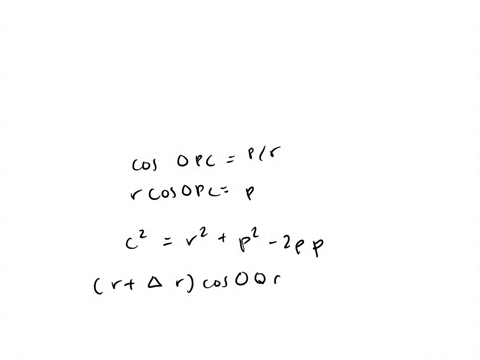 cos OPC = P/r
r cos OPC = p
c² = r² + p² - 2pp
(r + Δ r) cos OQr